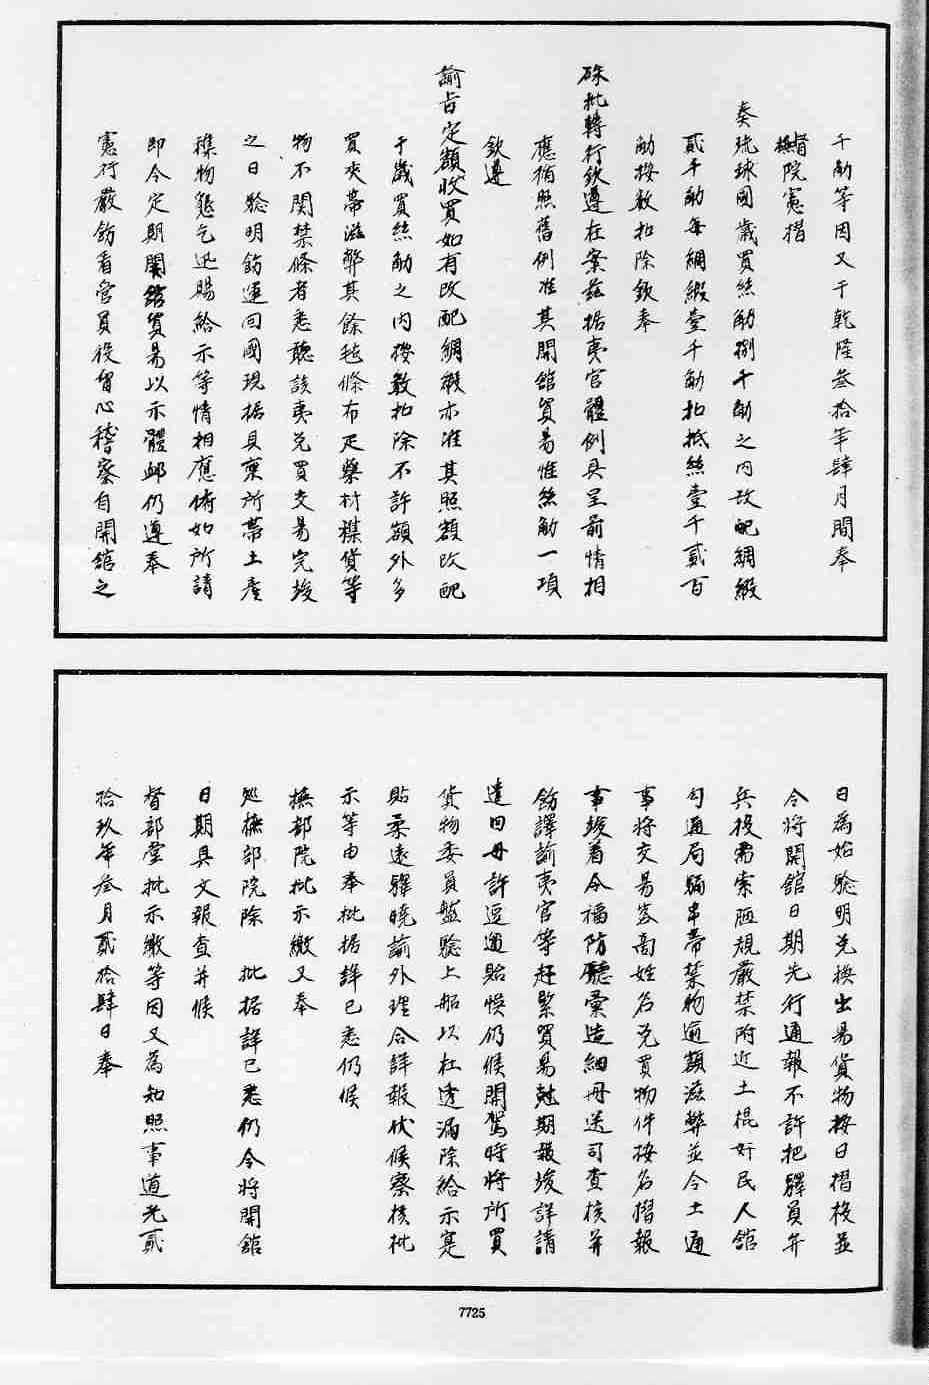 千觔等因又于乾隆叁拾年肆月間奉
督撫院憲摺
奏琉球國歲買絲觔捌千觔之内改配綢緞
貳千觔每綢緞壹千觔扣抵絲壹千貳百
觔按數扣除欽奉
硃批轉行欽遵在案茲据夷官體例具呈前情相
應循照舊例准其開舘貿易惟絲觔一項
欽遵
諭旨定額收買如有改配綢緞亦准其照額改配
于歲買絲觔之内按數扣除不許額外多
買夾帶滋弊其餘毡條布疋藥材襍貨等
物不関禁條者悉聽該夷兌買交易完竣
之日驗明飭運回國現据具稟所帶土產
襍物懇乞迅賜給示等情相應俯如所請
即令定期開舘貿易以示體卹仍遵奉
憲行嚴飭看官員役留心稽察自開舘之
日為始驗明兌換出易貨物按日摺投並
令將開舘日期先行通報不許把驛員弁
兵役需索陋規嚴禁附近土棍奸民人舘
勾通局騙串帶禁物逾額滋弊並令土通
事將交易客商姓名兌買物件按名摺報
事竣着令福防廳彙造細冊送司查核并
飭譯諭夷官等赶緊貿易尅期報竣詳請
遣回毋許逗遛貽悞仍候開駕時將所買
貨物委員盤驗上船以杜透漏除給示寔
貼柔遠驛曉諭外理合詳報伏候察核批
示等由奉批据詳已悉仍候
撫部院批示繳又奉
廵撫部院除 批据詳已悉仍令將開舘
日期具文報查并候
督部堂批示繳等因又為知照事道光貳
拾玖年叁月貳拾肆日奉
7725